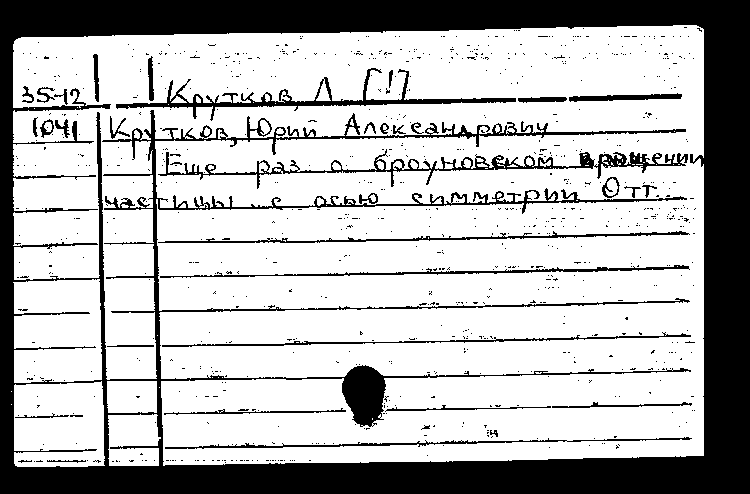 35-12 Крутков, Л [!]
1041 Крутков, Юрий Александрович
Еще раз о броуновском вращении
частицы с осью симметрии Отт.